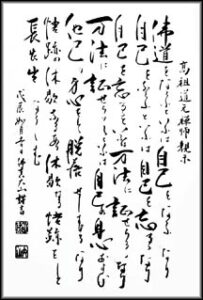 高祖道元禅師親示
佛道をならふといふは自己をならふなり
自己をならふといふは自己を忘るゝなり
自己を忘るゝといふは万法に証せらるゝなり
万法に証せらるゝといふは自己の身心および
他己の身心をして脱落せしむるなり
悟跡の休歇なるあり休歇なる悟跡を
長長出
ならしむ
戊辰